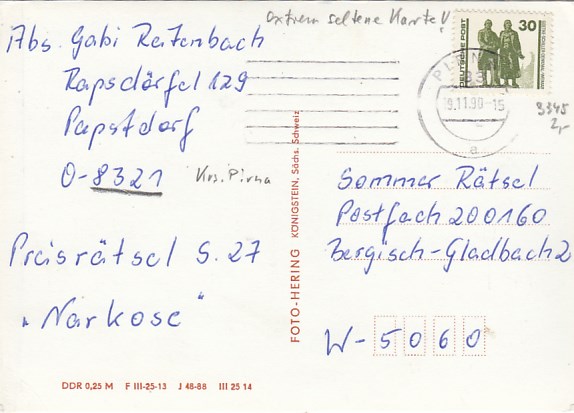 extrem seltene Karte!
Abs. Gabi Reitenbach
Rapsdörfel 129
Papstdorf
O-8321 Krs. Pirna
Preisrätsel S. 27
„Narkose“
DDR 0,25 M F III-25-13 J 48-88 III 25 14
FOTO-HERING KÖNIGSTEIN, Sächs. Schweiz
DEUTSCHE POST
30
9.11.90-15
a
3345
2,-
Sommer Rätsel
Postfach 200160
Bergisch-Gladbach 2
W-5060